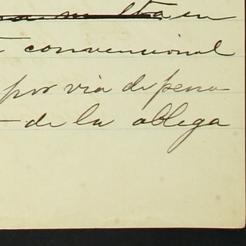 en
convencional
por via de pena
- de la obliga